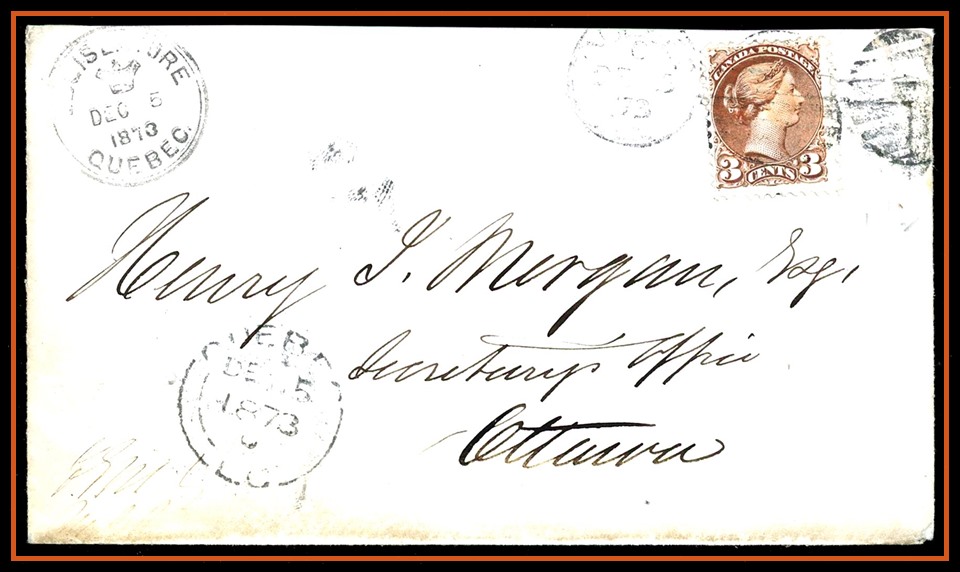 DEC 5
1873
QUEBEC.
73
CANADA POSTAGE
3 CENTS 3
Henry J. Morgan, Esq.,
Secretary's Office
Ottawa
QUEBEC
DE 5
1873
L.C.